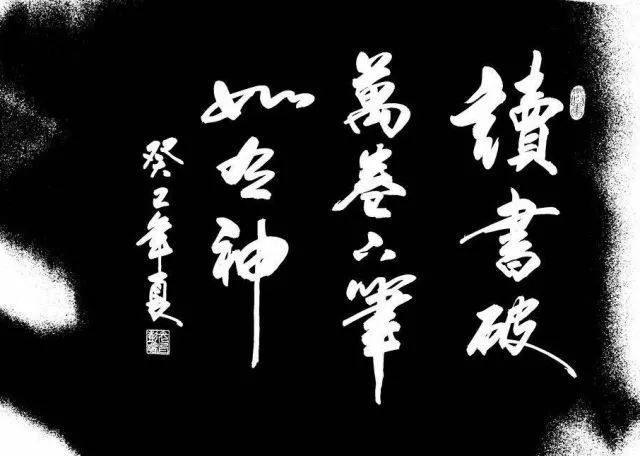 讀書破
萬卷下筆
如有神
癸巳年夏